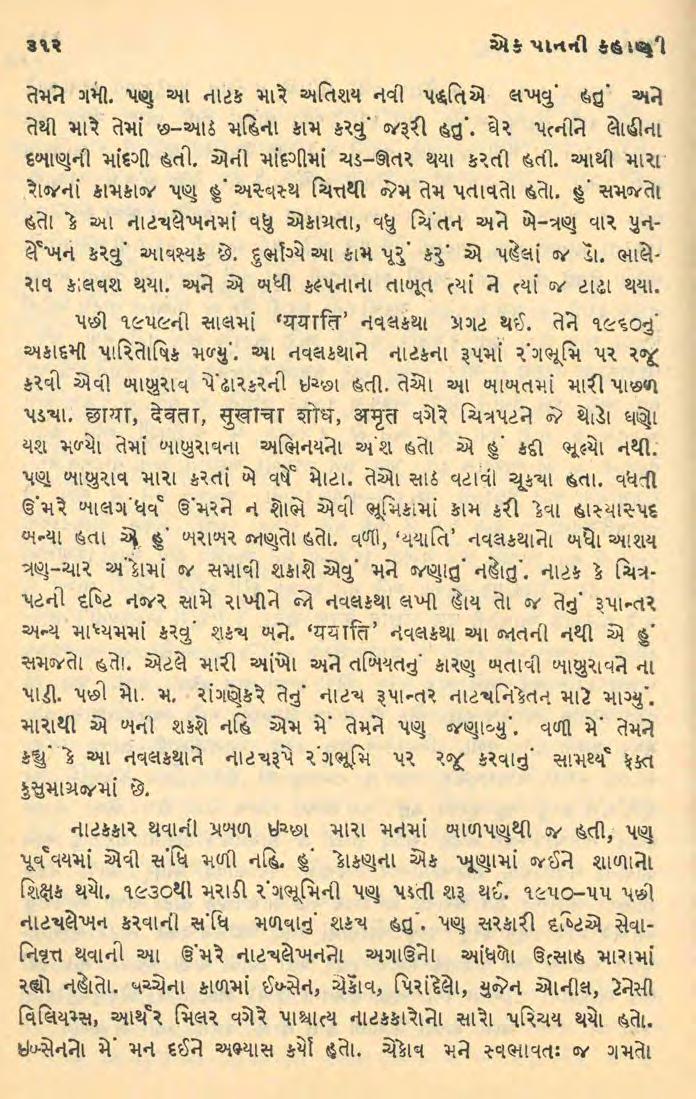 ૩૧૨ એક પાનની કહાણી
તેમને ગમી. પણ આ નાટક મારે અતિશય નવી પદ્ધતિએ લખવું હતું અને
તેથી મારે તેમાં છ-આઠ મહિના કામ કરવું જરૂરી હતું. ઘેર પત્નીને લોહીના
દબાણની માંદગી હતી. એની માંદગીમાં ચડ-ઊતર થયા કરતી હતી. આથી મારા
રોજનાં કામકાજ પણ હું અસ્વસ્થ ચિત્તથી જેમ તેમ પતાવતો હતો. હું સમજતો
હતો કે આ નાટ્યલેખનમાં વધુ એકાગ્રતા, વધુ ચિંતન અને બે-ત્રણ વાર પુન-
ર્લેખન કરવું આવશ્યક છે. દુર્ભાગ્યે આ કામ પૂરું કરું એ પહેલાં જ ડૉ. ભાલે-
રાવ કાલવશ થયા. અને એ બધી કલ્પનાના તાબૂત ત્યાં ને ત્યાં જ ટાઢા થયા.
પછી ૧૯૫૯ની સાલમાં ‘ययाति’ નવલકથા પ્રગટ થઈ. તેને ૧૯૬૦નું
અકાદમી પારિતોષિક મળ્યું. આ નવલકથાને નાટકના રૂપમાં રંગભૂમિ પર રજૂ
કરવી એવી બાબુરાવ પેંઢારકરની ઇચ્છા હતી. તેઓ આ બાબતમાં મારી પાછળ
પડયા. છાયા, देवता, सुखाचा शोध, अमृत વગેરે ચિત્રપટને જે થોડો ઘણો
યશ મળ્યો તેમાં બાબુરાવના અભિનયનો અંશ હતો એ હું કદી ભૂલ્યો નથી.
પણ બાબુરાવ મારા કરતાં બે વર્ષે મોટા. તેઓ સાઠ વટાવી ચૂકયા હતા. વધતી
ઉંમરે બાલગંધર્વ ઉંમરને ન શોભે એવી ભૂમિકામાં કામ કરી કેવા હાસ્યાસ્પદ
બન્યા હતા એ હું બરાબર જાણતો હતો. વળી, ‘ययाति’ નવલકથાનો બધો આશય
ત્રણ-ચાર અંકોમાં જ સમાવી શકાશે એવું મને જણાતું નહોતું. નાટક કે ચિત્ર-
પટની દષ્ટિ નજર સામે રાખીને જો નવલકથા લખી હોય તો જ તેનું રૂપાન્તર
અન્ય માધ્યમમાં કરવું શકય બને. ‘ययाति’ નવલકથા આ જાતની નથી એ હું
સમજતો હતો. એટલે મારી આંખો અને તબિયતનું કારણ બતાવી બાબુરાવને ના
પાડી. પછી મો. મ. રાંગણેકરે તેનું નાટય રૂપાન્તર નાટયનિકેતન માટે માગ્યું.
મારાથી એ બની શકશે નહિ એમ મેં તેમને પણ જણાવ્યું. વળી મેં તેમને
કહ્યું કે આ નવલકથાને નાટયરૂપે રંગભૂમિ પર રજૂ કરવાનું સામર્થ્ય ફક્ત
કુસુમાગ્રજમાં છે.
નાટકકાર થવાની પ્રબળ ઇચ્છા મારા મનમાં બાળપણથી જ હતી, પણ
પૂર્વવયમાં એવી સંધિ મળી નહિ. હું કોકણના એક ખૂણામાં જઈને શાળાનો
શિક્ષક થયો. ૧૯૩૦થી મરાઠી રંગભૂમિની પણ પડતી શરૂ થઈ. ૧૯૫૦-૫૫ પછી
નાટયલેખન કરવાની સંધિ મળવાનું શકય હતું. પણ સરકારી દષ્ટિએ સેવા-
નિવૃત્ત થવાની આ ઉંમરે નાટયલેખનનો અગાઉનો આંધળો ઉત્સાહ મારામાં
રહ્યો નહોતો. વચ્ચેના કાળમાં ઈબ્સેન, ચેકૉવ, પિરાંદેલો, યુજેન ઓનીલ, ટેનેસી
વિલિયમ્સ, આર્થર મિલર વગેરે પાશ્ચાત્ય નાટકકારોનો સારો પરિચય થયો હતો.
ઇબ્સેનનો મેં મન દઈને અભ્યાસ કર્યો હતો. ચેકોવ મને સ્વભાવતઃ જ ગમતો